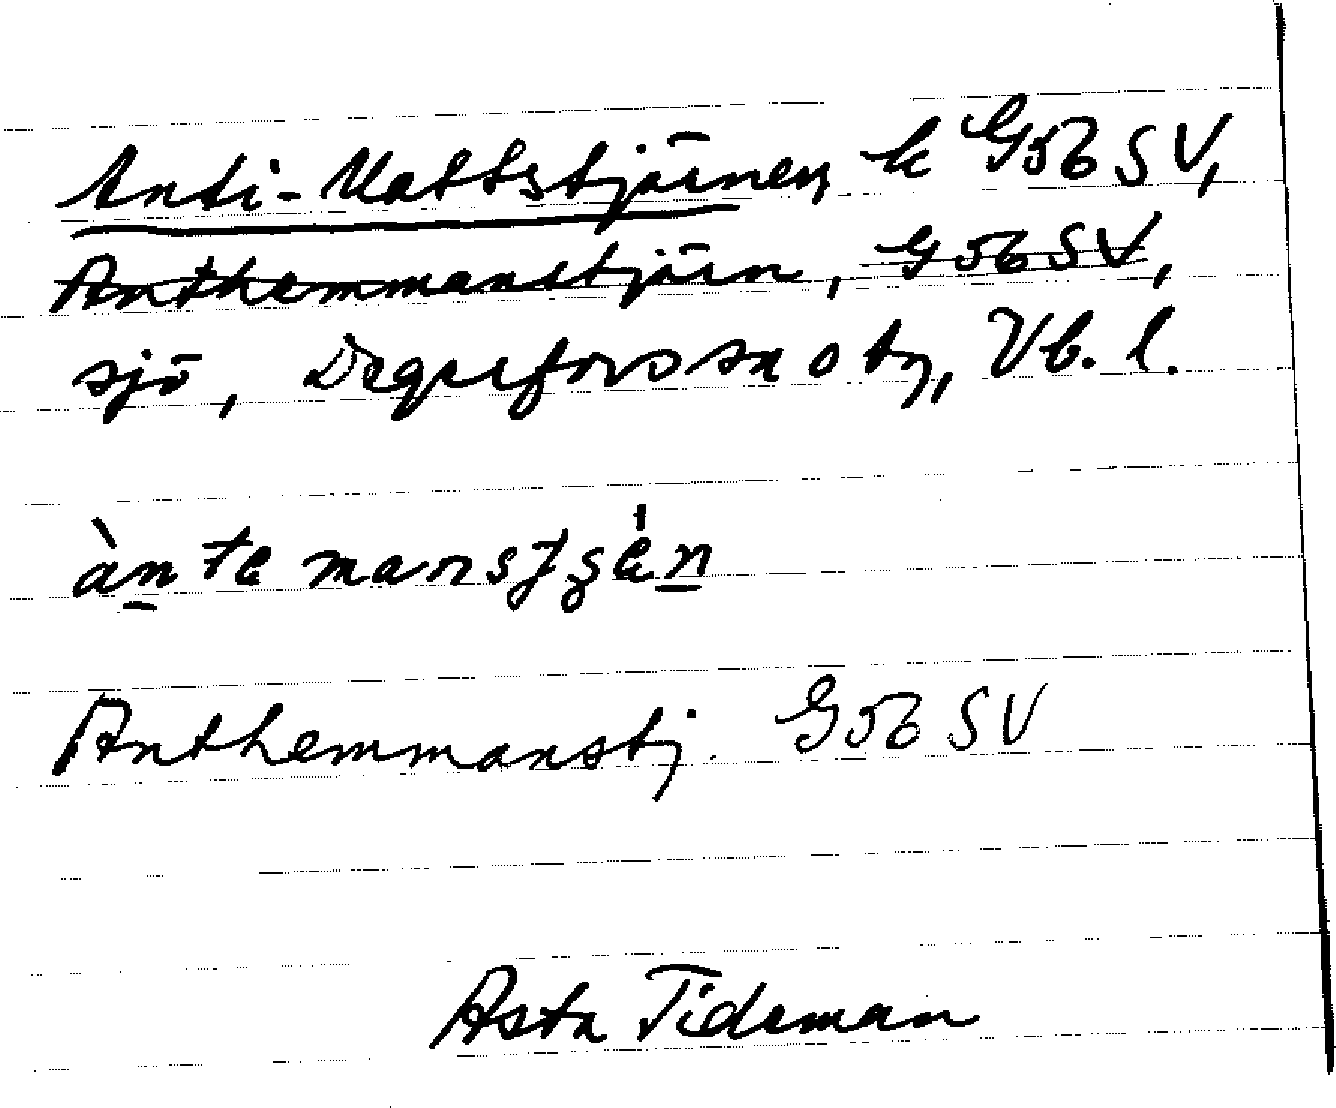 Anti-Mattstjärnen k G56 SV,
Anthemmanstjärn, G56 SV,
sjö, Degerfors sn o tg, Vb. l.
àntemanstʃǽn
Anthemmanstj. G56 SV
Asta Tideman